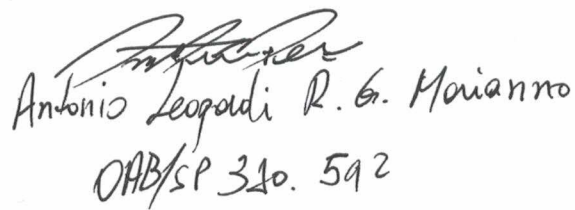 Antonio Leopardi R. G. Marianno
OAB/SP 310. 592